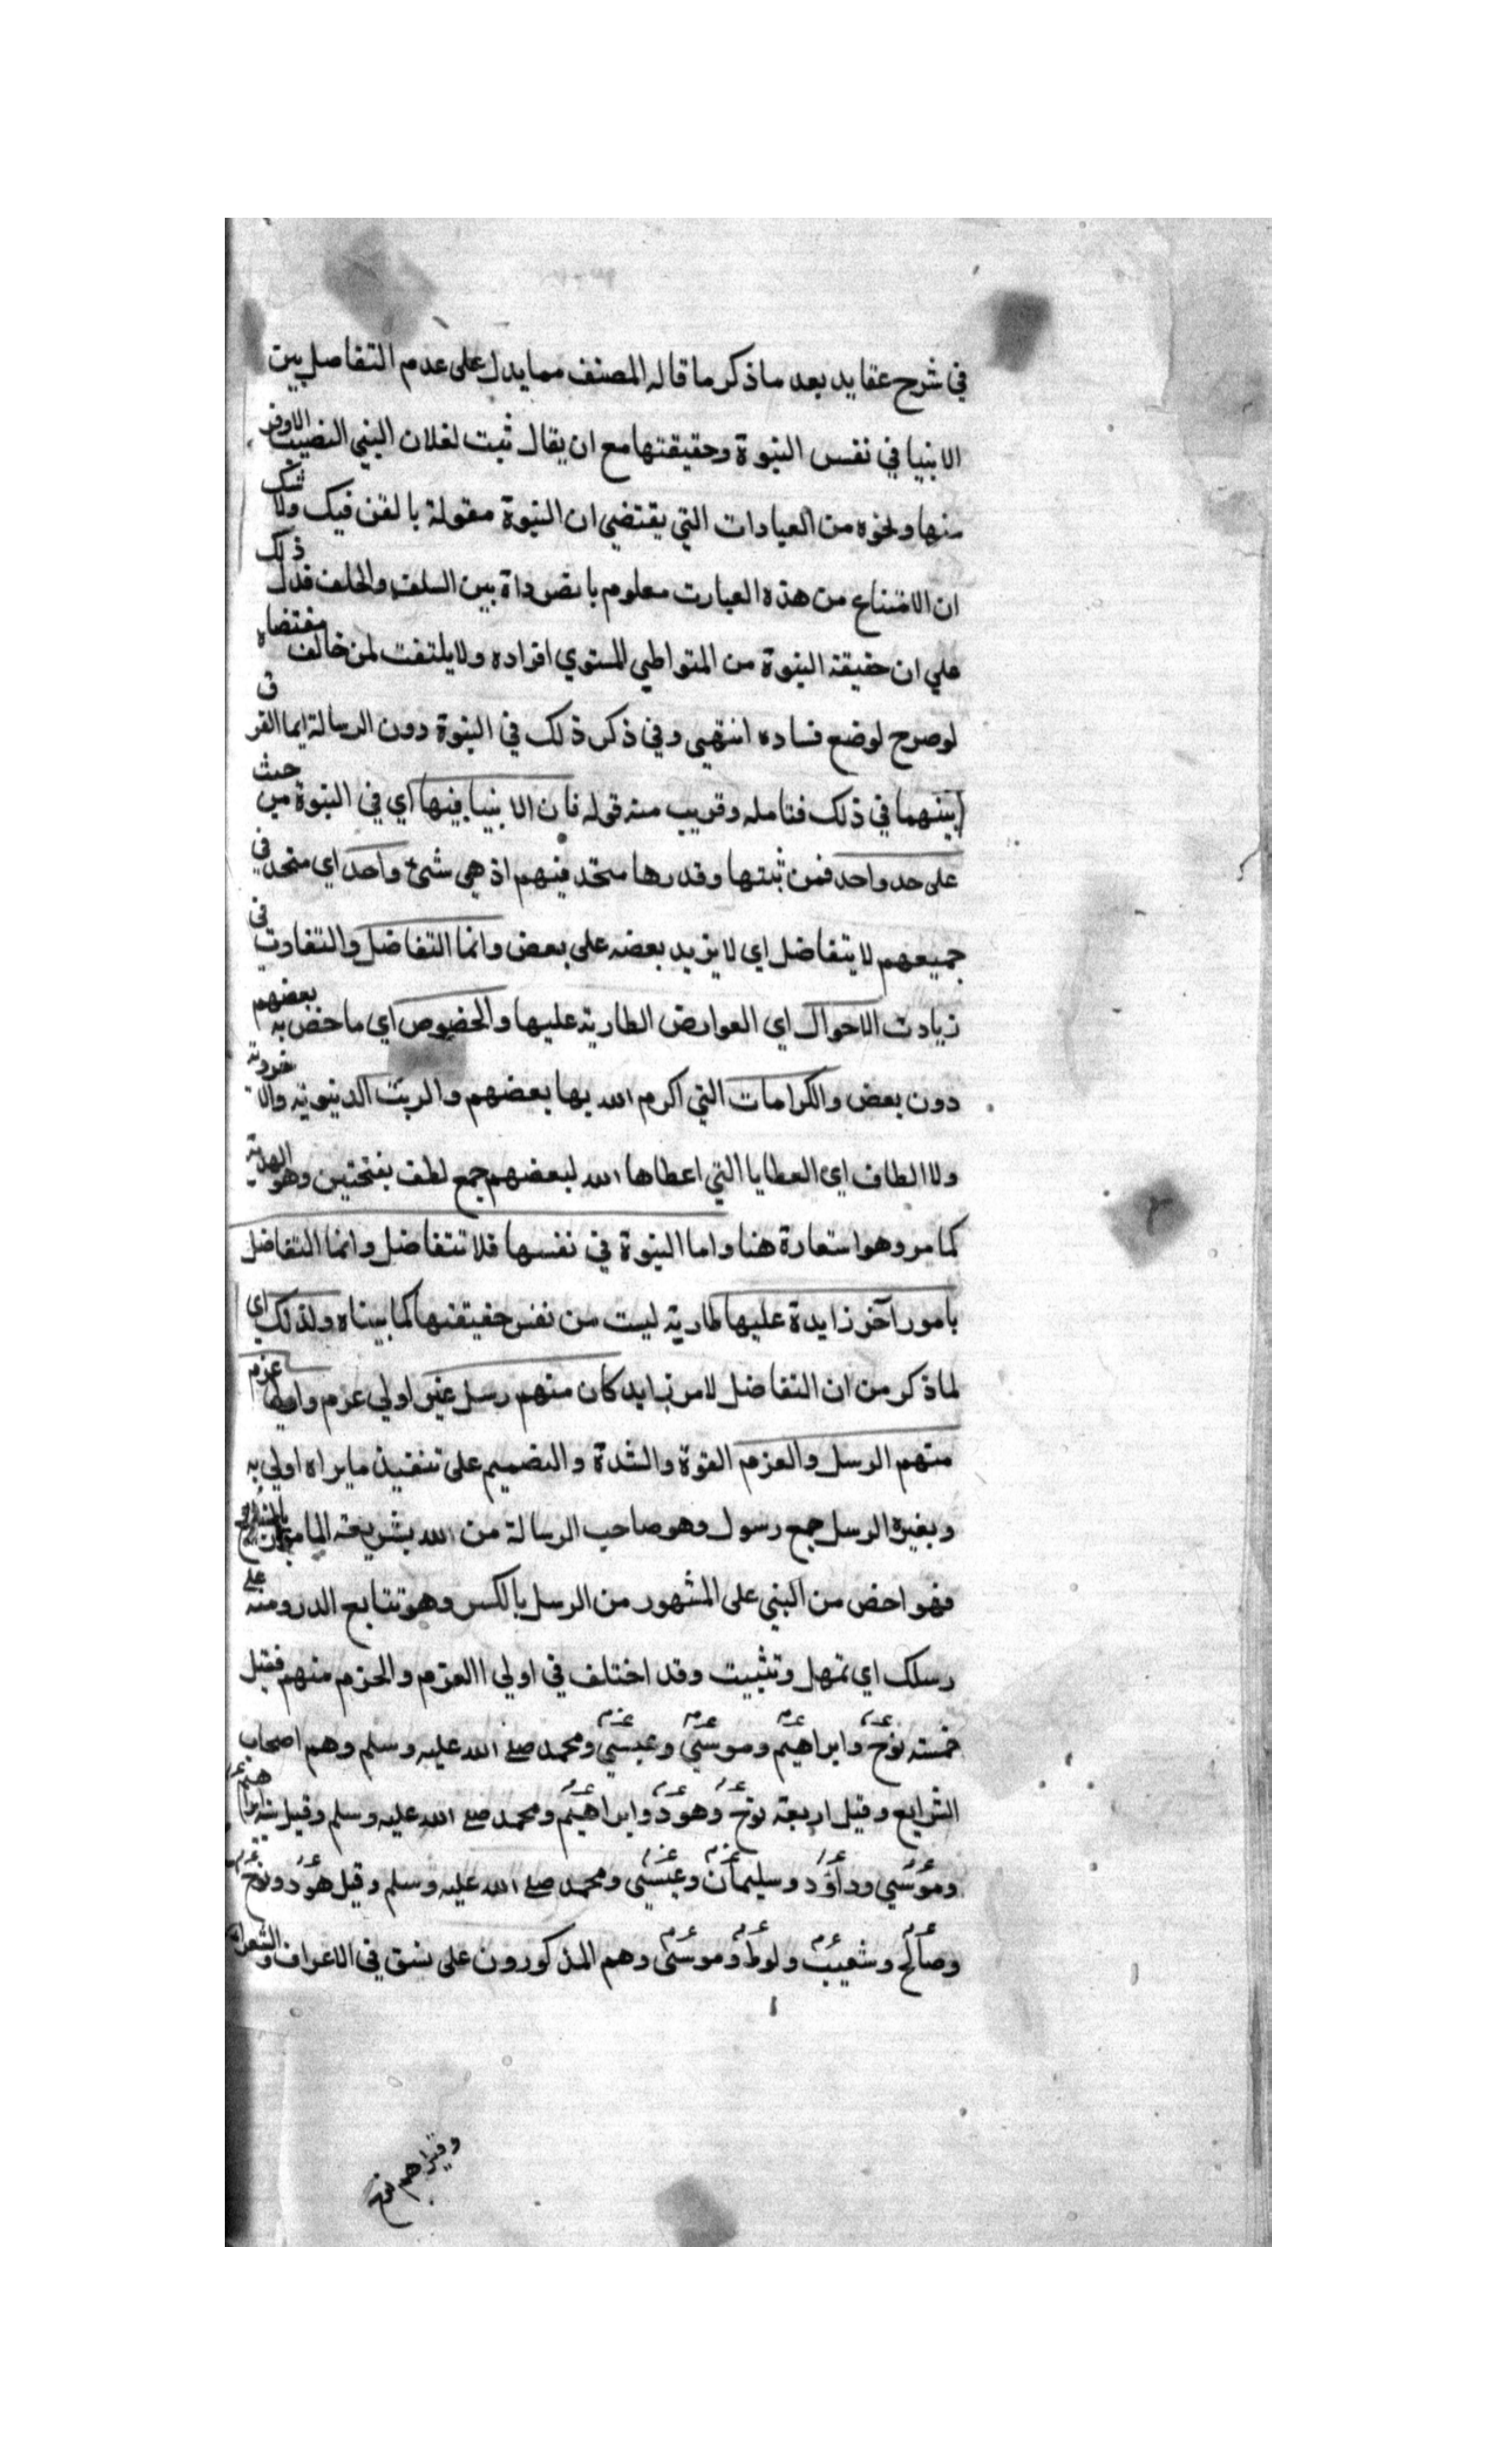 في شرح عقايد بعد ما ذكر ما قاله المصنف مما يدل على عدم التفاصل بين
الانبيا في نفس النبوة وحقيقتها مع ان يقال ثبت لفلان النبي النصيب الاوفر
منها ونحوه من العبادات التي يقتضي ان النبوة مقولة بالفن فيك ولا شك
ان الامتناع من هذه العبارت معلوم بين السلف والخلف فدل ذلك
علي ان حقيقة النبوة من المتواطي المستوي افراده ولا يلتفت لمن خالف مقتضاه
لوصرح لوضع فساده انتهيي وفي ذكر ذلك في النبوة دون الرسالة ايما الفرق
بينهما في ذلك فتامله وقريب منه قوله فان الانبيا فيها اي في النبوة من حيث
على حد واحد فمن ثبتها وقدرها متحد فيهم اذ هي شئ واحد اي متحد في
جميعهم لا يتفاضل اي لا يزيد بعضه على بعض وانما التفاضل والتفاوت في
زيادت الاحوال اي العوارض الطارية عليها والخصوص اي ما خص به بعضهم
دون بعض والكرامات التي اكرم الله بها بعضهم والرتب الدنيوية والاخروية
ولا الطاف اي العطايا التي اعطاها الله لبعضهم جمع لطف بفتحتين وهو الهدية
كما مر وهو استعارة هنا واما النبوة في نفسها فلا تتفاضل وانما التفاضل
بامور آخر زايدة عليها طارية ليست من نفس حقيقتها كما بيناه ولذلك اي
لما ذكر من ان التفاضل لامر زايد كان منهم رسل غير اولي عزم واولوا عزم
منهم الرسل والعزم القوة والشدة والتصميم على تنفيذ ما يراه اولي به
وبغيره الرسل جمع رسول وهو صاحب الرسالة من الله بشريعته المامور
فهو اخص من النبي على المشهور من الرسل بالكسر وهو تتابع الدر ومنه على
رسلك اي تمهل وتثبيت وقد اختلف في اولي االعزم والحزم منهم فقيل
خمسة نوح وابراهيم وموسي وعيسي ومحمد صلے الله عليه وسلم وهم اصحاب
الشرايع وقيل اربعة نوح وهود وابراهيم ومحمد صلے الله عليه وسلم وقيل ستة ابراهيم
وموسي وداؤد وسليمان وعيسي ومحمد صلے الله عليه وسلم وقيل هود ونوح
وصالح وشعيب ولوط وموسى وهم المذكورون على نسق في الاعراف والشعراء
وقيل هم نوح